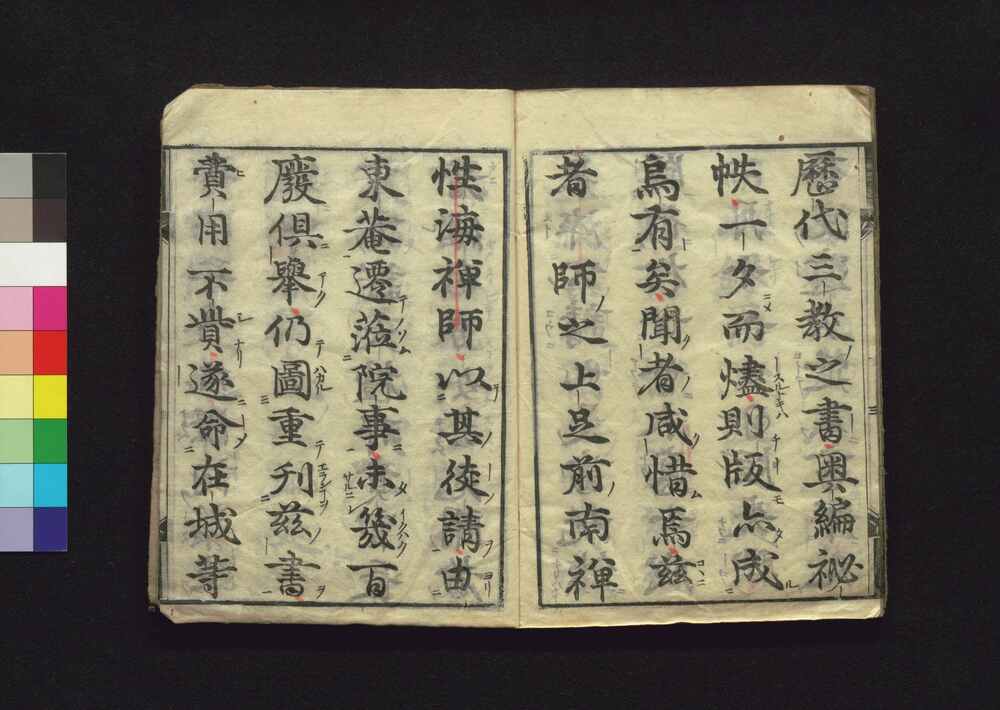 歷代三教之書奧編祕
帙一夕而燼則版亦成
烏有矣聞者咸惜焉茲
者師之上足前南禪
性海禪師以其徒請由
東菴遷蒞院事未幾百
廢俱舉仍圖重刋茲書
費用不貲遂命在城等